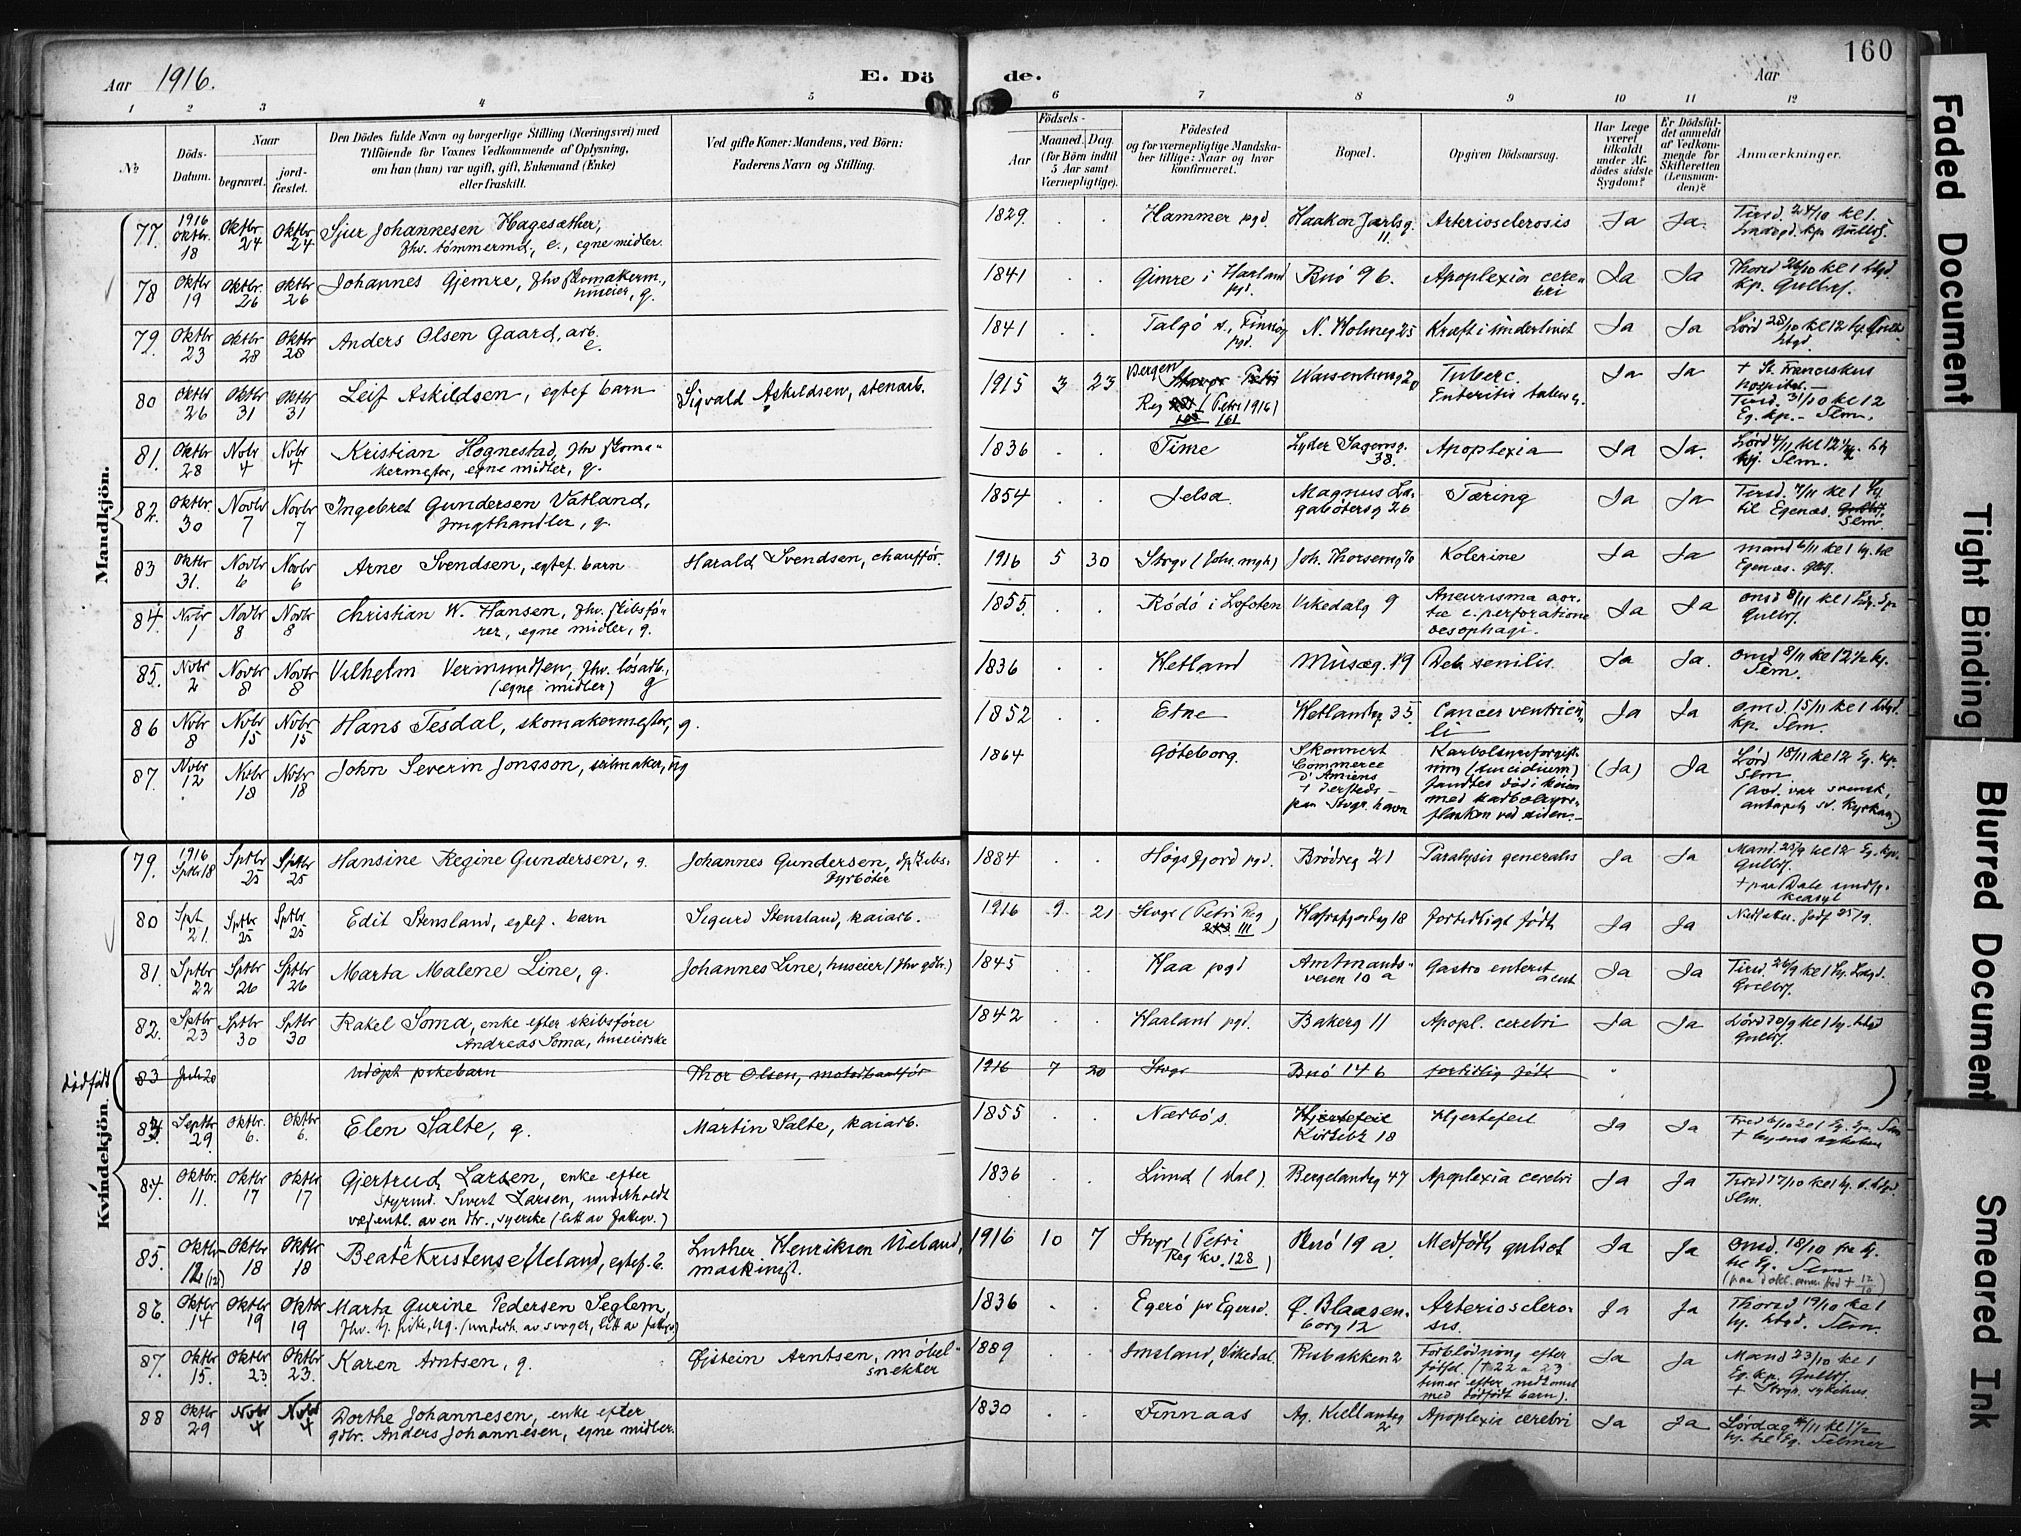 Aar 1916. E. Dö de. Aar 160
1 2 3 4 5 6 7 8 9 10 11 12
No
Döds-Datum.
Naar
begravet. jord-fæstet.
Den Dödes fulde Navn og borgerlige Stilling (Næringsvei) med
Tilföiende for Voxnes Vedkommende af Oplysning,
om han (hun) var ugift, gift, Enkemand (Enke)
eller fraskilt.
Ved gifte Koner: Mandens, ved Börn:
Faderens Navn og Stilling.
Födsels-
Aar Maaned. Dag.
(for Börn indtil
5 Aar samt
Værnepligtige).
Födested
og for værnepligtige Mandska-
ber tillige: Naar og hvor
konfirmeret.
Bopæl.
Opgiven Dödsaarsag.
Har Læge
været
tilkaldt
under Af-
dödes sidste
Sygdom?
Er Dödsfal-
det anmeldt
af Vedkom-
mende for
Skifteretten
(Lensman-
den)?
Anmærkninger.
Mandkjön.
77. 1916 Oktbr. 18 Oktbr 24 Oktbr 24 Sjur Johannesen Hagesæther, fhv. tömmermd., e., egne midler. 1829 . . Hammer pgd. Haakon Jarlsg. 11. Arteriosclerosis Ja Ja. Tirsd. 24/10 kl 1.
78 Oktbr 19 Oktbr. 26 Oktbr 26 Johannes Gjemre, fhv skomakerm., huseier, g. 1841 . . Gimre i Haaland pgd. Buö 96. Apoplexia cerebri Ja Ja Thorsd 26/10 kl 1 kp. Gulbrs.
79. Oktbr 23 Oktbr 28 Oktbr 28 Anders Olsen Gaard, arb. e. 1841 . . Talgö s., Finnöy pgd. N. Holmeg 25 Kræft i underlivet Ja Ja Lörd 28/10 kl 12
80 Oktbr 26 Oktbr 31 Oktbr 31 Leif Askildsen, egtef barn Sigvald Askildsen, stenarb. 1915 3 23 Bergen Stavgr Petri Reg (Petri 1916) 161 Tuberc. Enteritis Ja Ja + St. Franciskus hospital. Tirsd. 31/10 kl 12 Eg. kp. - Slm.
81. Oktbr 28 Nobr 4 Nobr 4 Kristian Hognestad, fhv skoma-kermester, egne midler, g. 1836 . . Time Lyder Sagensg. 38. Apoplexia Ja Ja. Lörd 4/11 kl 12 1/2 Slm.
82. Oktbr. 30 Novbr 7 Novbr 7 Ingebret Gundersen Vatland, frugthandler, g. 1854 . . Jelsa Magnus La-gabötersg 26 Tæring Ja Ja Tirsd. 7/11 kl 1 til Egenæs. Slm.
83 Oktbr 31. Novbr 6 Novbr 6 Arne Svendsen, egtef. barn Harald Svendsen, chaufför. 1916 5 30 Stvgr Joh. Thorsensg 70 Kolerine Ja Ja mand 6/11 kl 1 Egenæs.
84. Novbr 1 Novbr 8 Novbr 8 Christian W. Hansen, fhv. skibsfö-rer, egne midler, g. 1855. . . Rödö i Lofoten Vikedalg 9 Aneurisma aor-tæ c. perforatione oesophagi. Ja Ja onsd 8/11 kl 1 Gulbrs.
85. Novbr 2 Novbr 8 Novbr 8 Vilhelm Vermundsen, fhv. lösarb., (egne midler) g 1836 . . Hetland Musæg. 19 Deb. senilis. Ja Ja. onsd 8/11 kl 12 1/2 Slm.
86 Novbr 8 Novbr 15 Novbr 15 Hans Tesdal, skomakermester, g. 1852 . . Etne Hetlandsg 35. Cancer ventricu-li Ja Ja onsd. 15/11 kl 1 kp. Slm.
87. Novbr 12 Novbr 18 Novbr 18 John Severin Jonsson, seilmaker, ug 1864 . . Göteborg. Skonnert Commerce D'Amiens + derfteds - paa Stvgr. havn Karbolsyreforgift-ning (suicidium) fandtes död i köien med karbolsyre-flasken ved siden.- (Ja) Ja Lörd 18/11 kl 12 Eg. kp. Slm (avd. var svensk,
Kvindekjön.
79. 1916 Sptbr 18 Sptbr 25 Sptbr 25 Hansine Regine Gundersen, g. Johannes Gundersen, fyrböter 1884 . . Högsfjord pgd. Brödreg 21 Paralysis generalis Ja Ja Mand. 25/9 kl 12 Eg. kp. Gulbrs. + paa Dale sindsy-keasyl
80 Spt 21. Sptbr 25 Sptbr 25 Edit Stensland, egtef. barn Sigurd Stensland, kaiarb. 1916 9 21 Stvgr (Petri Reg 111) Hafrsfjordg 18 fortidligt född Ja Ja
81. Sptbr 22 Sptbr 26 Sptbr 26 Marta Malene Line, g. Johannes Line, huseier (fhv gdbr.) 1845 . . Haa pgd Amtmands-veien 10 a Gastro enterit acut Ja Ja Tirsd. 26/9 kl 1 Gulbrs.
82. Sptbr 23 Sptbr 30 Sptbr 30 Rakel Soma, enke efter skibsförer Andreas Soma, huseierske 1842 . . Haaland pgd. Bakerg 11 Apopl. cerebri Ja Ja Lörd 30/9 kl 1 Gulbrs.
dödfödt (83 Juli 20 udöpt pikebarn Thor Olsen, motorbaatför 1916 7 20 Stvgr Buö 146 fortidlig född )
84 Septbr 29. Oktbr. 6. Oktbr 6. Elen Salte, g. Martin Salte, kaiarb. 1855 . . Nærbö s. Hjertefeil Kirkebk 18 Hjertefeil Ja Ja Fred 6/10 kl 1 + byens sykehus
84. Oktbr. 11. Oktbr 17 Oktbr 17 Gjertrud Larsen, enke efter styrmd. Sivert Larsen, underholdt væsentl. av en dtr., syerske (litt av fattigv.) 1836 . . Lund (Dal) Bergelandsg 47 Apoplexia cerebri Ja Ja Tirsd 17/10 kl 1 Slm.
85. Oktbr 12 (12) Oktbr 18 Oktbr 18 Beate Kristense Ueland, egtef. b. Luther Henriksen Ueland, maskinist. 1916 10 7 Stvgr (Petri Reg kv. 128) Buö 19 a. Medfödt gulsot Ja Ja Onsd. 18/10
86. Oktbr 14 Oktbr 19 Oktbr 19 Marta Gurine Pedersen Seglem, fhv. tj. pike, ug. (underh. av svoger, litt av fattigv) 1836 . . Egerö pr Egersd. Ö. Blaasen-borg 12 Arterioscler-sis. Ja Ja Thorsd 19/10 kl 1 Slm.
87. Oktbr 15. Oktbr 23. Oktbr 23. Karen Arntsen, g. Öistein Arntsen, möbel-snekker 1889 . . Imsland, Vikedal. Risbakken 2 Forblödning efter födsel. († 22 a 23 timer efter nedkomst med dödfödt barn). Ja Ja Mand 23/10 kl 1 Eg. kp. Gulbrs. + Stvgr. sykehus.
88 Oktbr 29 Novbr 4 Novbr 4 Dorthe Johannesen, enke efter gdbr. Anders Johannesen, egne midler. 1830 . . Finnaas Ag. Kiellandsg 2 Apoplexia cerebri Ja Ja Lördag 4/11 kl 1 1/2 Selmer
Faded Document
Tight Binding
Blurred Document
Smeared Ink